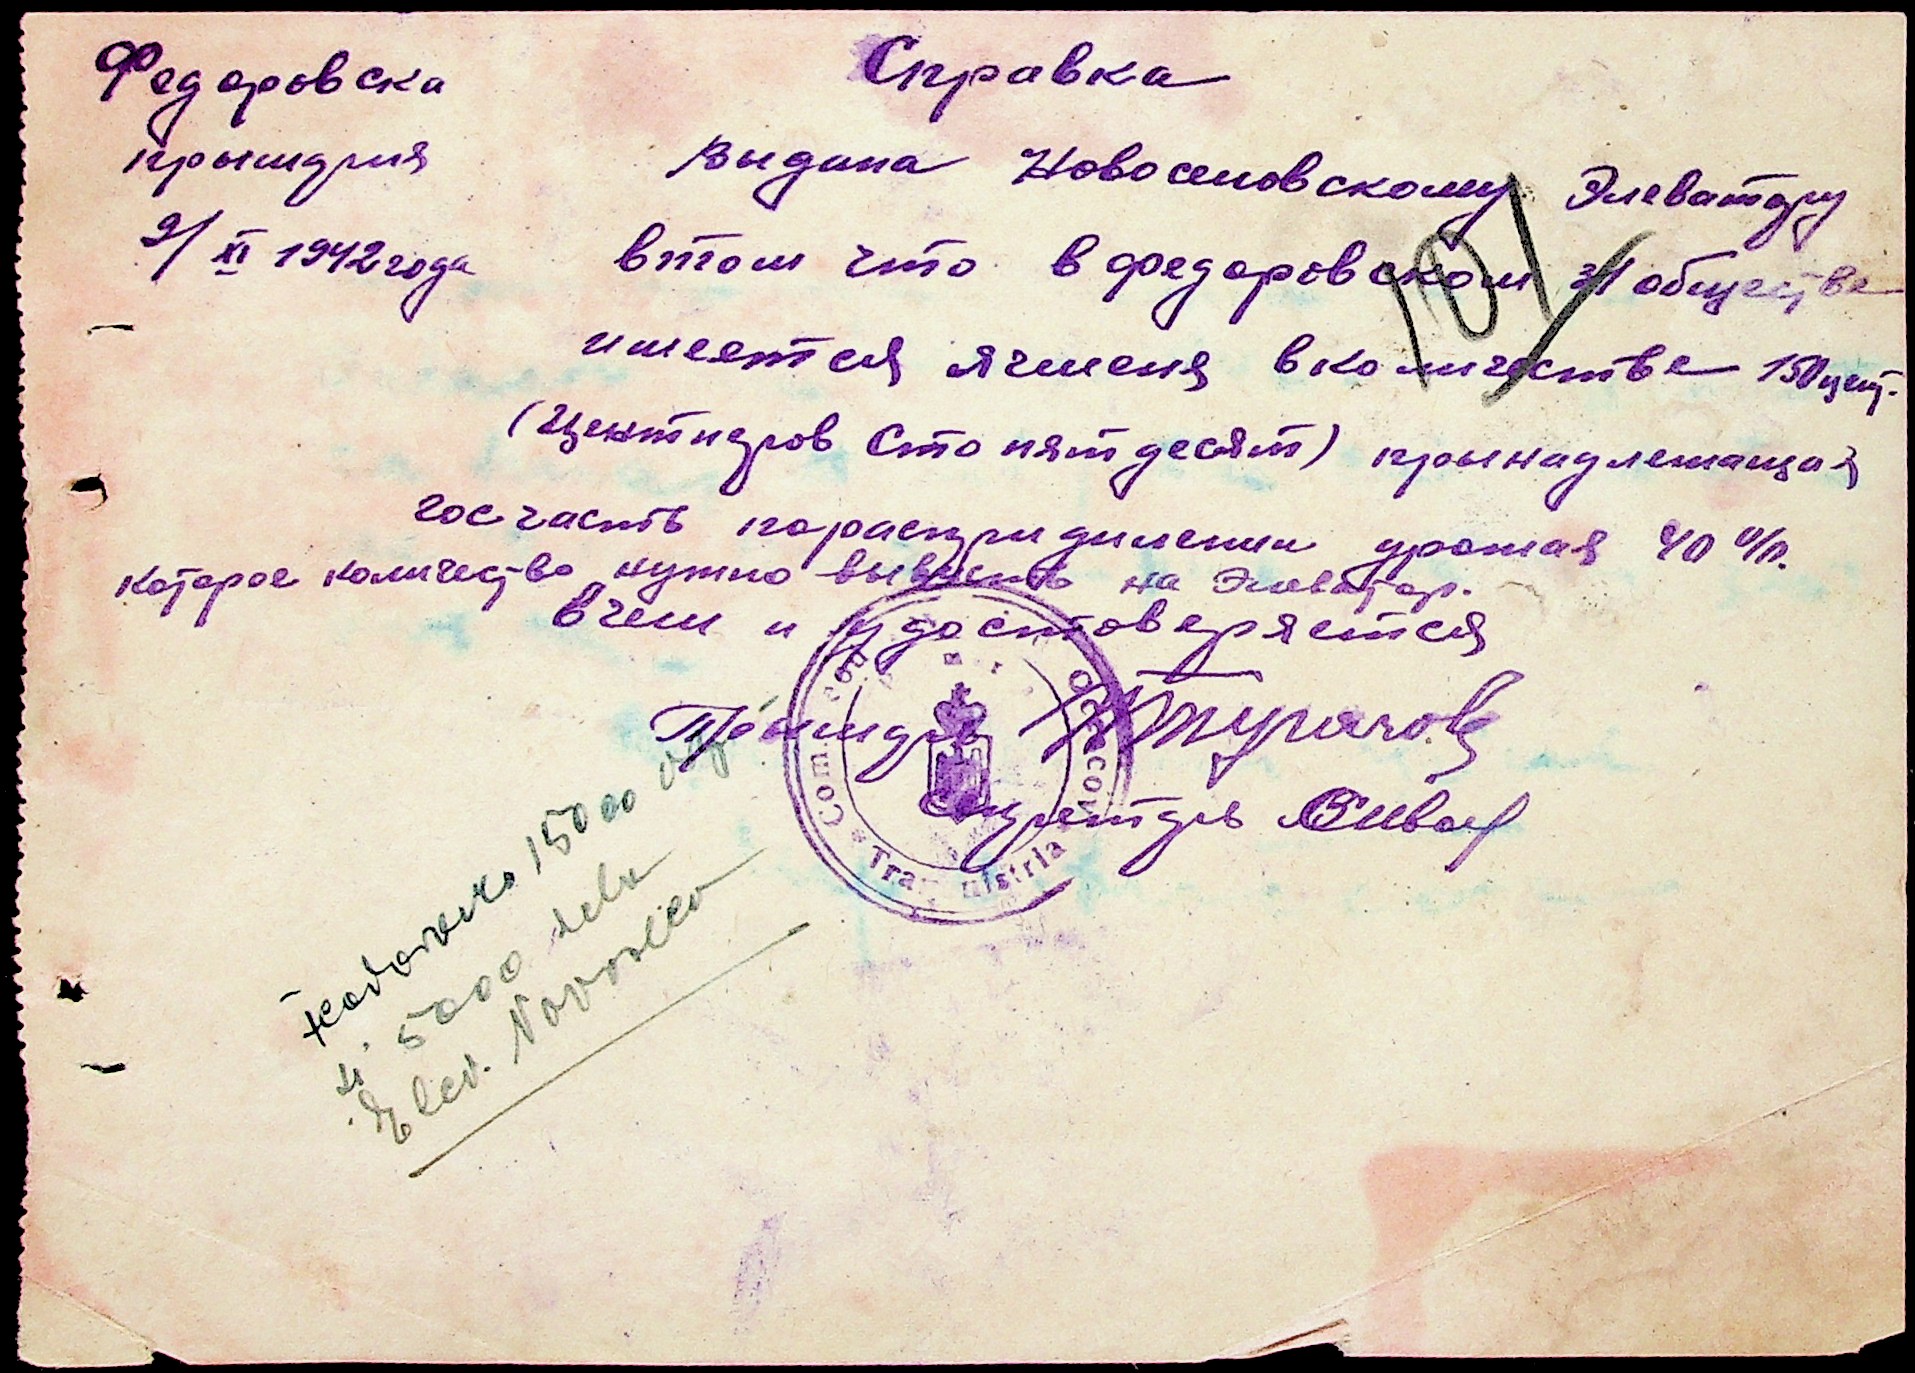 Федоровска
прымдрия
9/XI 1942 года
Справка
Выдана Новоселовскому Элеватору
в том что в федоровском з/обществе
имеятся ячменя в количестве 150 цент.
(Центнеров Сто пятдесят) прынадлежащая
гос часть пораспридилении урожая 40%.
которое количество нужно вывезть на Элеватор.
в чем и удостоверяется
Прымарь
Секретарь
101
Com.
Transnistria
Feodorovka 15000 orz
si 5000 dela
Elev. Novoselov